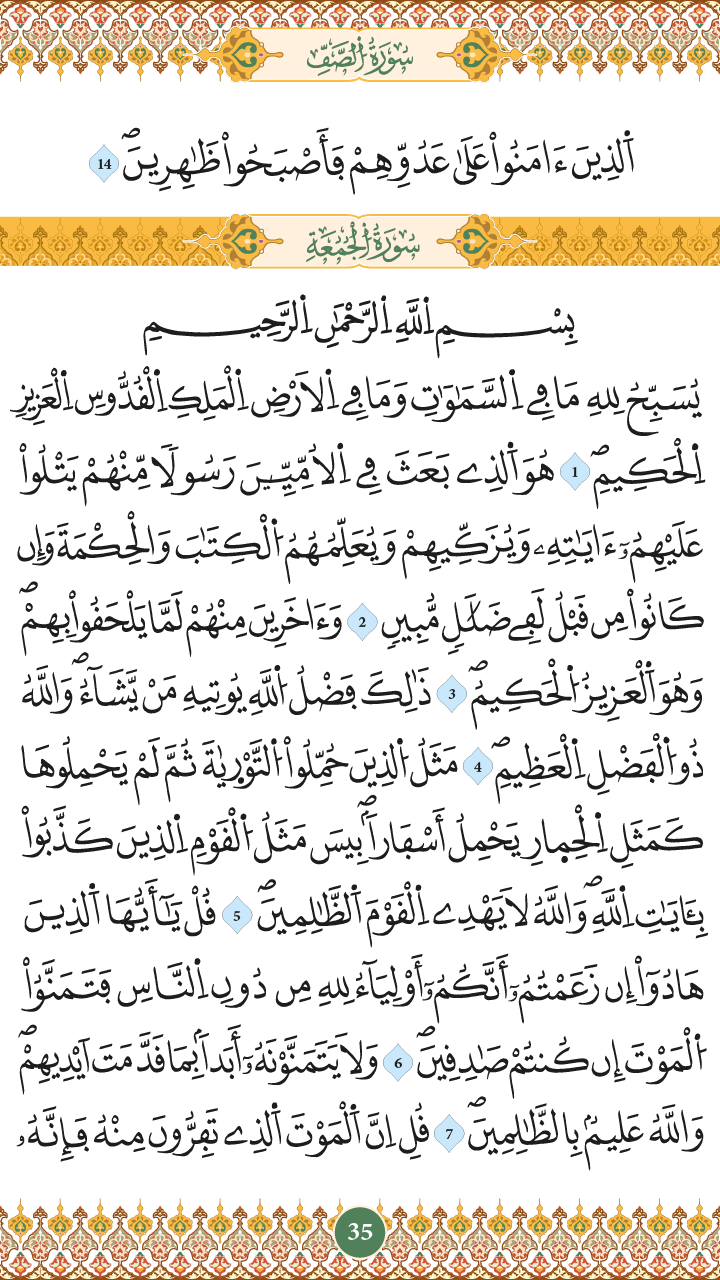 سُورَةُ الصَّفِّ
اَ۬لذِينَ ءَامَنُواْ عَلَىٰ عَدُوِّهِمْ فَأَصْبَحُواْ ظَٰهِرِينَۖ 14
سُورَةُ الْجُمُعَةِ
بِسْمِ اِ۬للَّهِ اِ۬لرَّحْمَٰنِ اِ۬لرَّحِيمِ
يُسَبِّحُ لِلهِ مَا فِے اِ۬لسَّمَٰوَٰتِ وَمَا فِے اِ۬لَارْضِ اِ۬لْمَلِكِ اِ۬لْقُدُّوسِ اِ۬لْعَزِيزِ
اِ۬لْحَكِيمِۖ 1 هُوَ اَ۬لذِے بَعَثَ فِے اِ۬لُامِّيِّـۧنَ رَسُولاٗ مِّنْهُمْ يَتْلُواْ
عَلَيْهِمُۥٓ ءَايَٰتِهِۦ وَيُزَكِّيهِمْ وَيُعَلِّمُهُمُ اُ۬لْكِتَٰبَ وَالْحِكْمَةَ وَإِن
كَانُواْ مِن قَبْلُ لَفِے ضَلَٰلٖ مُّبِينٖ 2 وَءَاخَرِينَ مِنْهُمْ لَمَّا يَلْحَقُواْ بِهِمْۖ
وَهُوَ اَ۬لْعَزِيزُ اُ۬لْحَكِيمُۖ 3 ذَٰلِكَ فَضْلُ اُ۬للَّهِ يُوتِيهِ مَنْ يَّشَآءُۖ وَاللَّهُ
ذُو اُ۬لْفَضْلِ اِ۬لْعَظِيمِۖ 4 مَثَلُ اُ۬لذِينَ حُمِّلُواْ اُ۬لتَّوْر۪يٰةَ ثُمَّ لَمْ يَحْمِلُوهَا
كَمَثَلِ اِ۬لْحِم۪ارِ يَحْمِلُ أَسْفَاراَۢۖ بِيسَ مَثَلُ اُ۬لْقَوْمِ اِ۬لذِينَ كَذَّبُواْ
بِـَٔايَٰتِ اِ۬للَّهِۖ وَاللَّهُ لَا يَهْدِے اِ۬لْقَوْمَ اَ۬لظَّٰلِمِينَۖ 5 قُلْ يَٰٓأَيُّهَا اَ۬لذِينَ
هَادُوٓاْ إِن زَعَمْتُمُۥٓ أَنَّكُمُۥٓ أَوْلِيَآءُ لِلهِ مِن دُونِ اِ۬لنَّاسِ فَتَمَنَّوُاْ
اُ۬لْمَوْتَ إِن كُنتُمْ صَٰدِقِينَۖ 6 وَلَا يَتَمَنَّوْنَهُۥٓ أَبَداَۢ بِمَا قَدَّمَتَ اَيْدِيهِمْۖ
وَاللَّهُ عَلِيمُۢ بِالظَّٰلِمِينَۖ 7 قُلِ اِنَّ اَ۬لْمَوْتَ اَ۬لذِے تَفِرُّونَ مِنْهُ فَإِنَّهُۥ
35